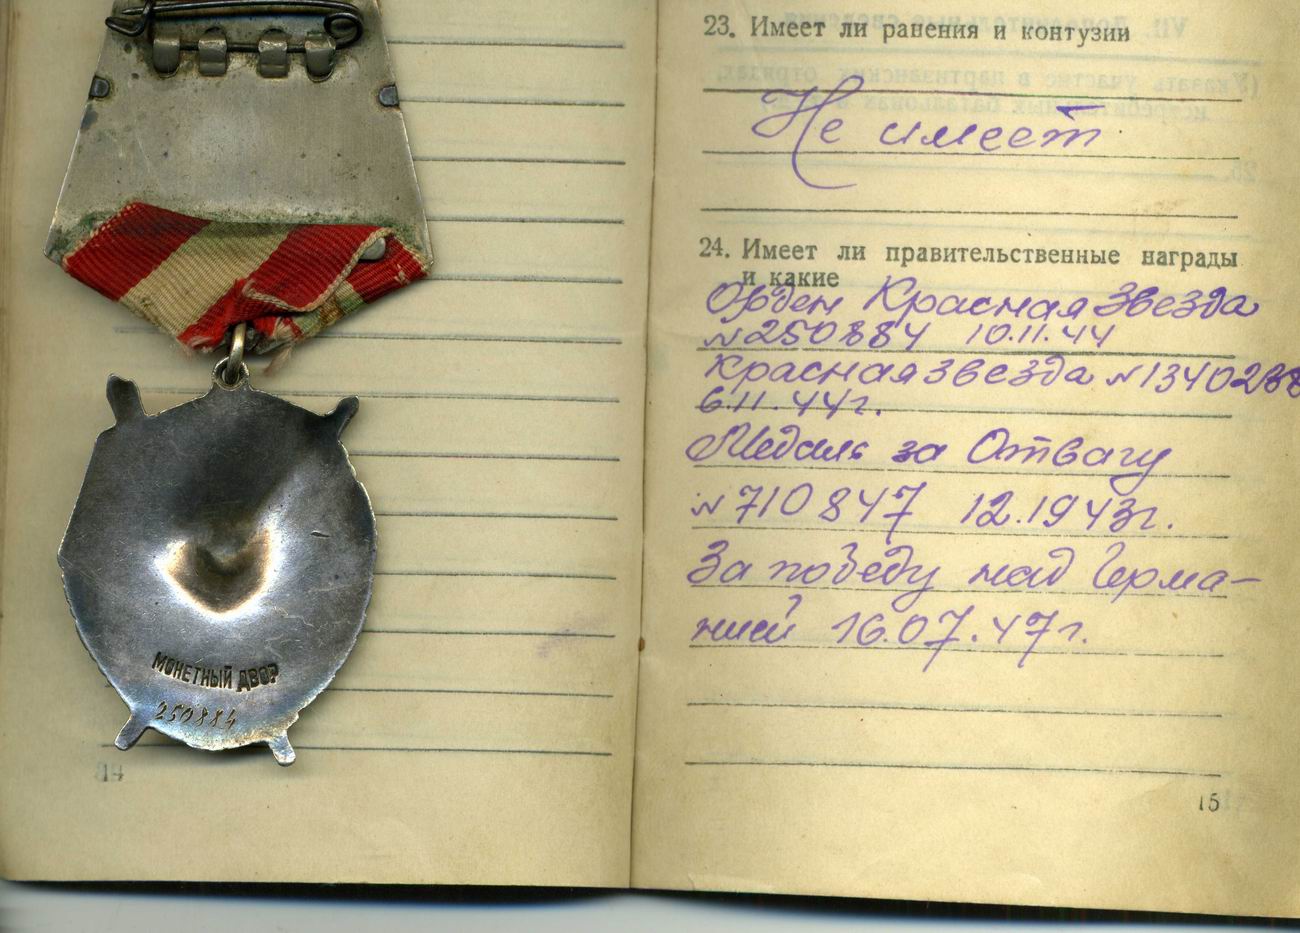 МОНЕТНЫЙ ДВОР
250884
14
23. Имеет ли ранения и контузии
Не имеет
24. Имеет ли правительственные награды
и какие
Орден Красная Звезда
№250884 10.11.44
Красная звезда №1340238
6.11.44г.
Медаль за Отвагу
№710847 12.1943г.
За победу над Герма-
нией 16.07.47г.
15